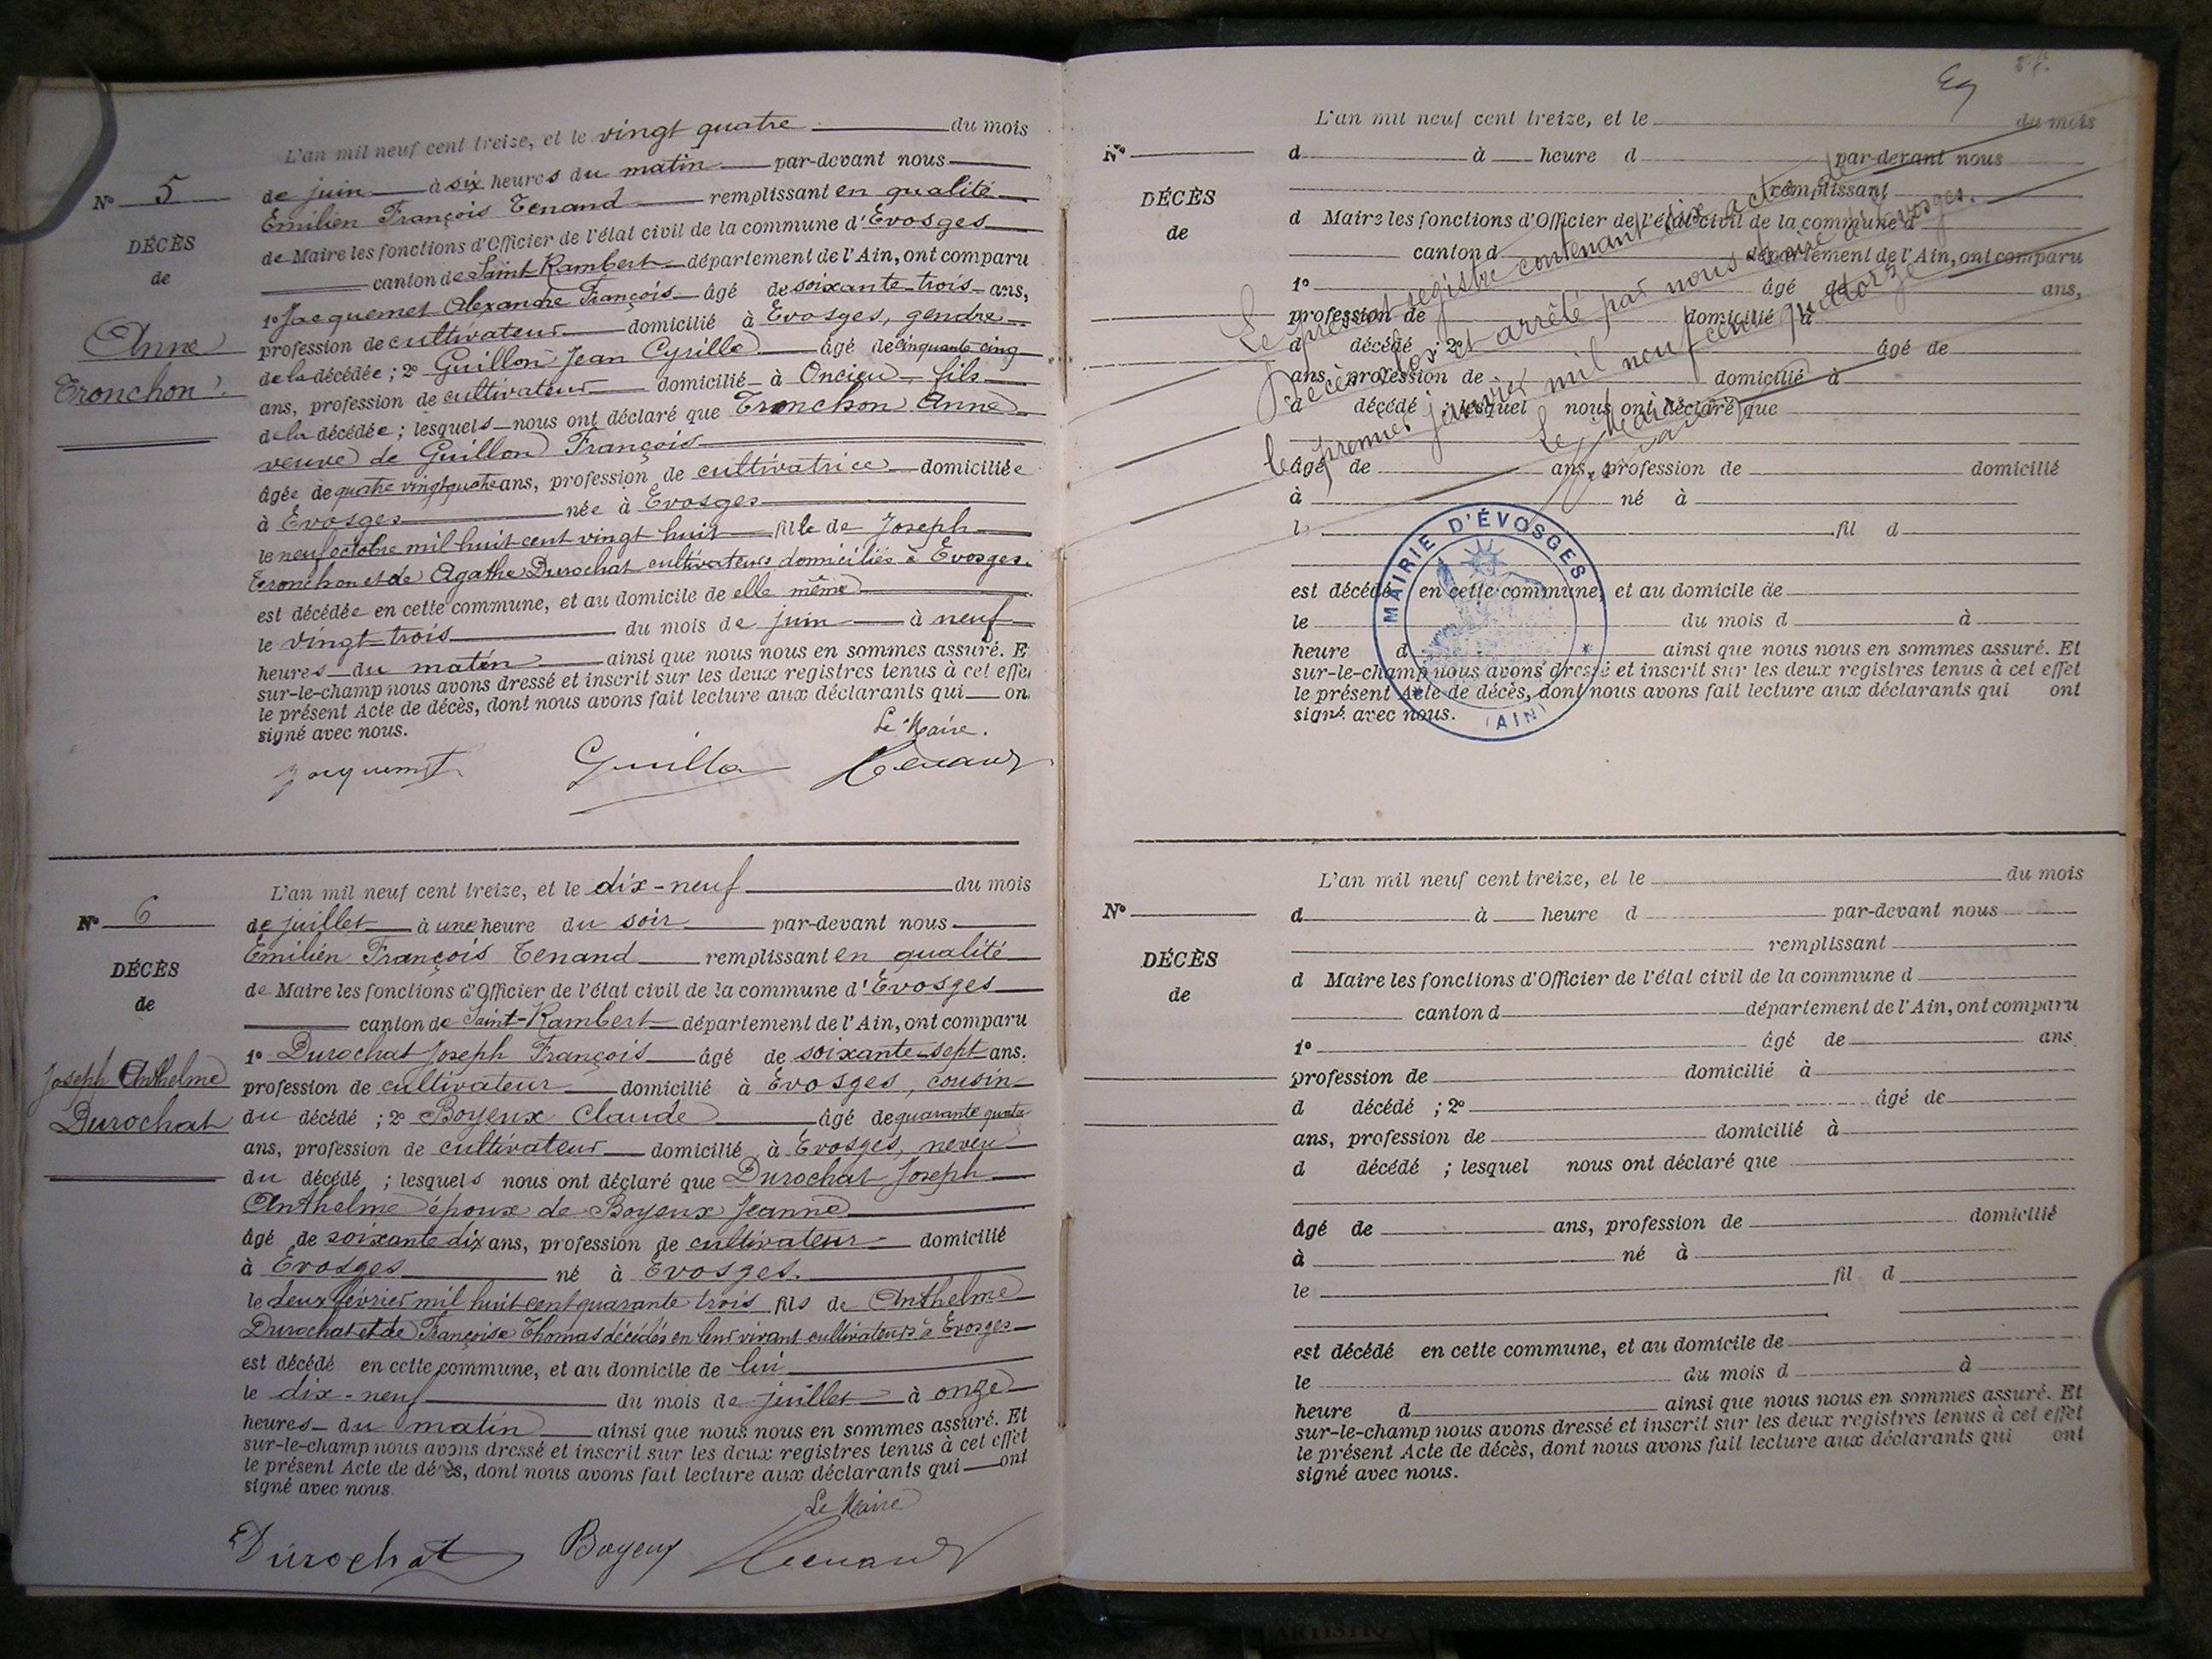 L'an mil neuf cent treize, et le vingt quatre du mois
N° 5
de juin à six heures du matin par-devant nous
Emilien François Tenand remplissant en qualité
DÉCÈS
de Maire les fonctions d'Officier de l'état civil de la commune d'Evosges
de
canton de Saint Rambert département de l'Ain, ont comparu
1° Jacquemet Alexandre François âgé de soixante-trois ans,
Anne
profession de cultivateur domicilié à Evosges, gendre
de la décédée ; 2° Guillon Jean Cyrille âgé de cinquante cinq
Tronchon
ans, profession de cultivateur domicilié à Oncieu, fils
de la décédée ; lesquels nous ont déclaré que Tronchon Anne
veuve de Guillon François
âgée de quatre vingt quatre ans, profession de cultivatrice domiciliée
à Evosges née à Evosges
le neuf octobre mil huit cent vingt huit fille de Joseph
Tronchon et de Agathe Durochat cultivateurs domiciliés à Evosges.
est décédée en cette commune, et au domicile de elle même
le vingt-trois du mois de juin à neuf
heures du matin ainsi que nous nous en sommes assuré. E
sur-le-champ nous avons dressé et inscrit sur les deux registres tenus à cet effe
le présent Acte de décès, dont nous avons fait lecture aux déclarants qui on
signé avec nous.
Le Maire.
Jacquemet Guillon Tenand
L'an mil neuf cent treize, et le dix-neuf du mois
N° 6
de juillet à une heure du soir par-devant nous
Emilien François Tenand remplissant en qualité
DÉCÈS
de Maire les fonctions d'Officier de l'état civil de la commune d'Evosges
de
canton de Saint-Rambert département de l'Ain, ont comparu
1° Durochat Joseph François âgé de soixante-sept ans.
Joseph Anthelme
profession de cultivateur domicilié à Evosges, cousin
Durochat
du décédé ; 2° Boyeux Claude âgé de quarante quatre
ans, profession de cultivateur domicilié à Evosges, neveu
du décédé ; lesquels nous ont déclaré que Durochat Joseph
Anthelme époux de Boyeux Jeanne
âgé de soixante dix ans, profession de cultivateur domicilié
à Evosges né à Evosges.
le deux février mil huit cent quarante trois fils de Anthelme
Durochat et de Françoise Thomas décédés en leur vivant cultivateurs à Evosges
est décédé en cette commune, et au domicile de lui
le dix-neuf du mois de juillet à onze
heures du matin ainsi que nous nous en sommes assuré. Et
sur-le-champ nous avons dressé et inscrit sur les deux registres tenus à cet effet
le présent Acte de décès, dont nous avons fait lecture aux déclarants qui ont
signé avec nous.
Le Maire
Durochat Boyeux Tenand
L'an mil neuf cent treize, et le du mois
N°
d à heure d par-devant nous
remplissant
DÉCÈS
d Maire les fonctions d'Officier de l'état civil de la commune d
de
canton d département de l'Ain, ont comparu
1° âgé de ans,
profession de domicilié à
d décédé ; 2° âgé de
ans, profession de domicilié à
d décédé ; lesquel nous ont déclaré que
âgé de ans, profession de domicilié
à né à
l fil d
est décédé en cette commune, et au domicile de
le du mois d à
heure d ainsi que nous nous en sommes assuré. Et
sur-le-champ nous avons dressé et inscrit sur les deux registres tenus à cet effet
le présent Acte de décès, dont nous avons fait lecture aux déclarants qui ont
signé avec nous.
Le présent registre contenant six actes de
Décès clos et arrêté par nous Maire d'Evosges.
le premier janvier mil neuf cent quatorze
Le Maire
Tenand
MAIRIE D'ÉVOSGES
(AIN)
L'an mil neuf cent treize, et le du mois
N°
d à heure d par-devant nous
remplissant
DÉCÈS
d Maire les fonctions d'Officier de l'état civil de la commune d
de
canton d département de l'Ain, ont comparu
1° âgé de ans
profession de domicilié à
d décédé ; 2° âgé de
ans, profession de domicilié à
d décédé ; lesquel nous ont déclaré que
âgé de ans, profession de domicilié
à né à
le fil d
est décédé en cette commune, et au domicile de
le du mois d à
heure d ainsi que nous nous en sommes assuré. Et
sur-le-champ nous avons dressé et inscrit sur les deux registres tenus à cet effet
le présent Acte de décès, dont nous avons fait lecture aux déclarants qui ont
signé avec nous.